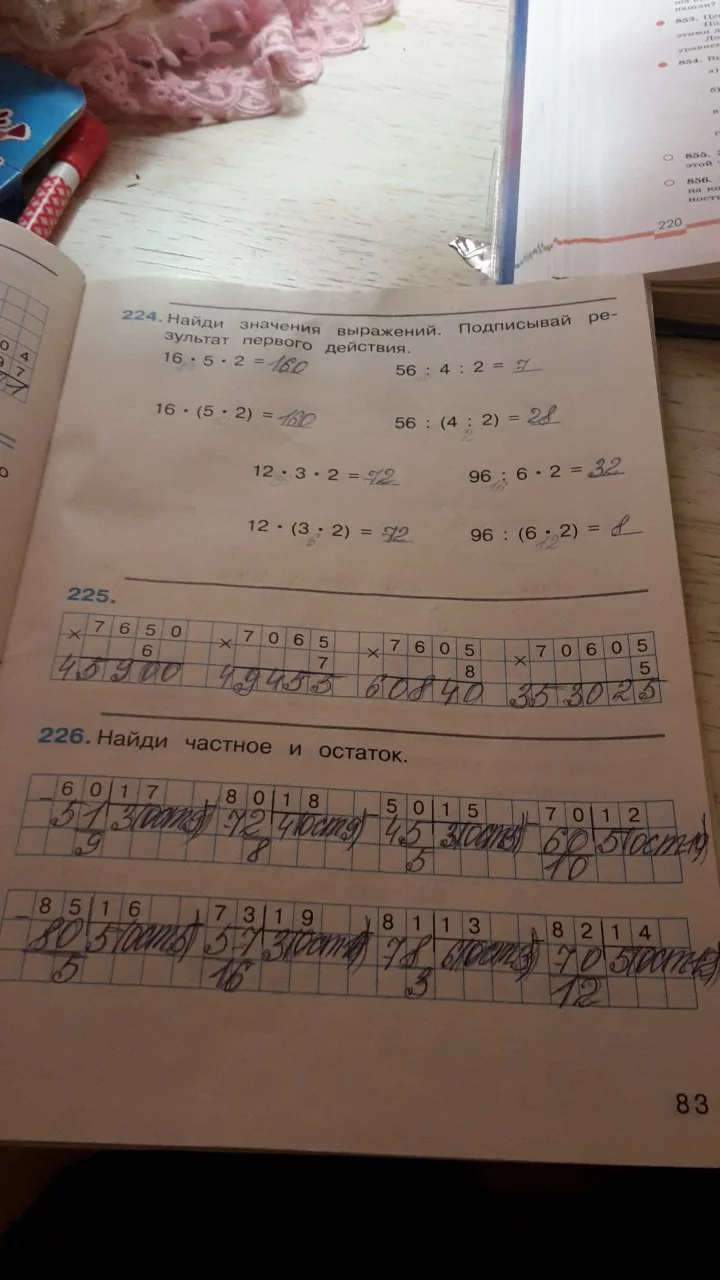 853. Це
854. В
а)
б)
в
855.
этой
856.
на ко
ност
220
224. Найди значения выражений. Подписывай ре-
зультат первого действия.
16 • 5 • 2 = 160
56 : 4 : 2 = 7
16 • (5 • 2) = 160
56 : (4 : 2) = 28
2
12 • 3 • 2 = 72
96 : 6 • 2 = 32
12 • (3 • 2) = 72
6
96 : (6 • 2) = 8
12
225.
× 7650 × 7065 × 7605 × 70605
6 7 8 5
45900 49455 60840 353025
226. Найди частное и остаток.
− 60|17 80|18 − 50|15 − 70|12
51 3(ост9) 72 4(ост 45 3(ост5) 60 5(ост10)
9 8 5 10
− 85|16 73|19 81|13 82|14
80 5(ост5) 57 3(ост 78 6(ост3) 70 5(ост12)
5 16 3 12
83